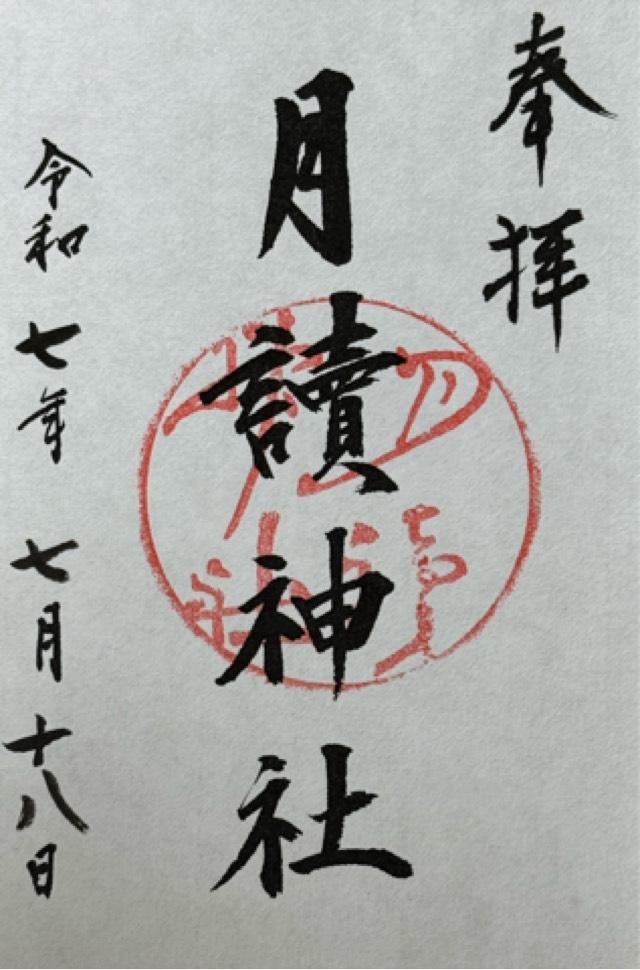 奉拝
月讀神社
令和七年七月十八日